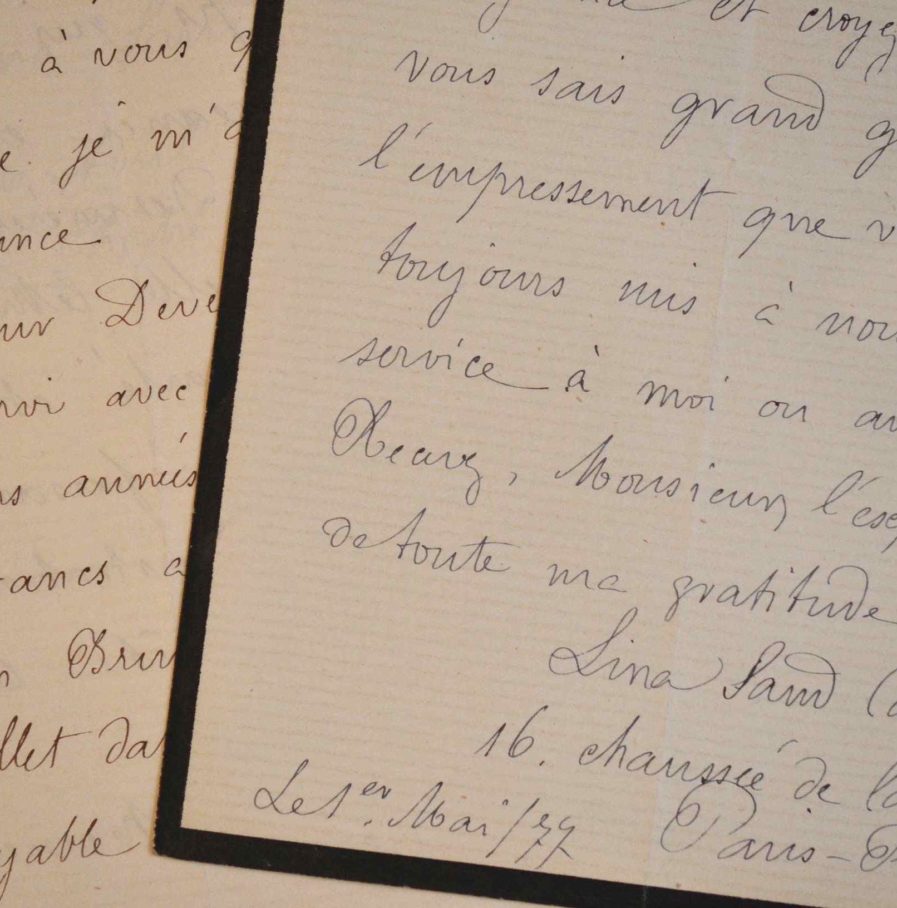 à vous
je m'a
ance
ur Deve
rvi avec
ns années
ancs a
Brun
llet da
yable
et croyez
vous sais grand g
l'empressement que v
toujours mis à nou
service à moi ou au
Recevez, Monsieur, l'exp
de toute ma gratitude
Lina Sand (
16. chaussée de la
Le 1er. Mai /77 Paris-P